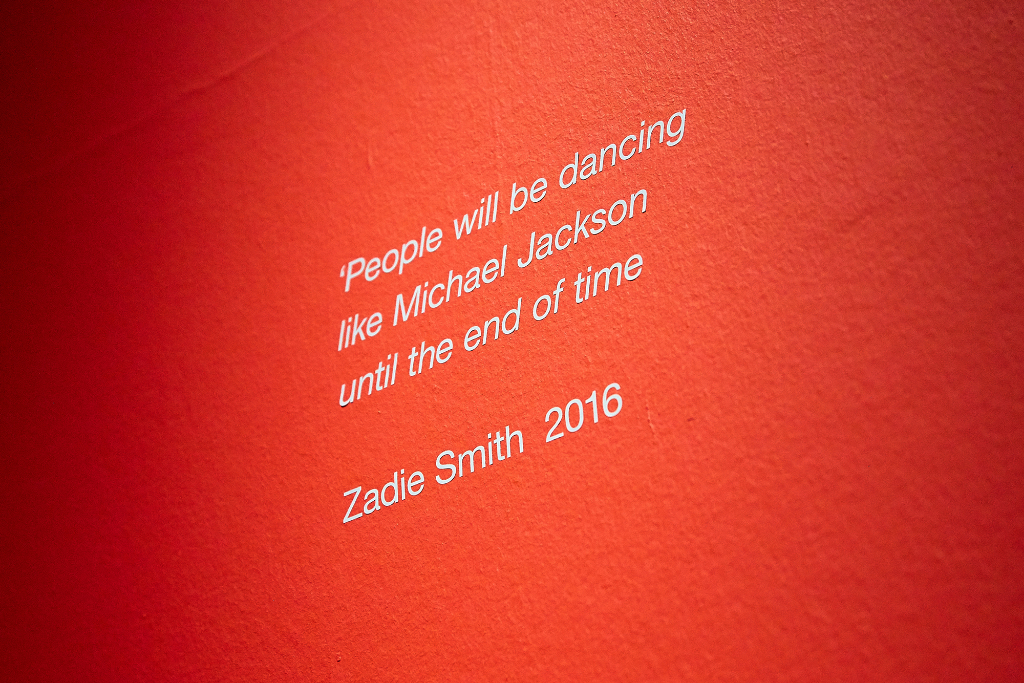 ‘People will be dancing
like Michael Jackson
until the end of time
Zadie Smith 2016